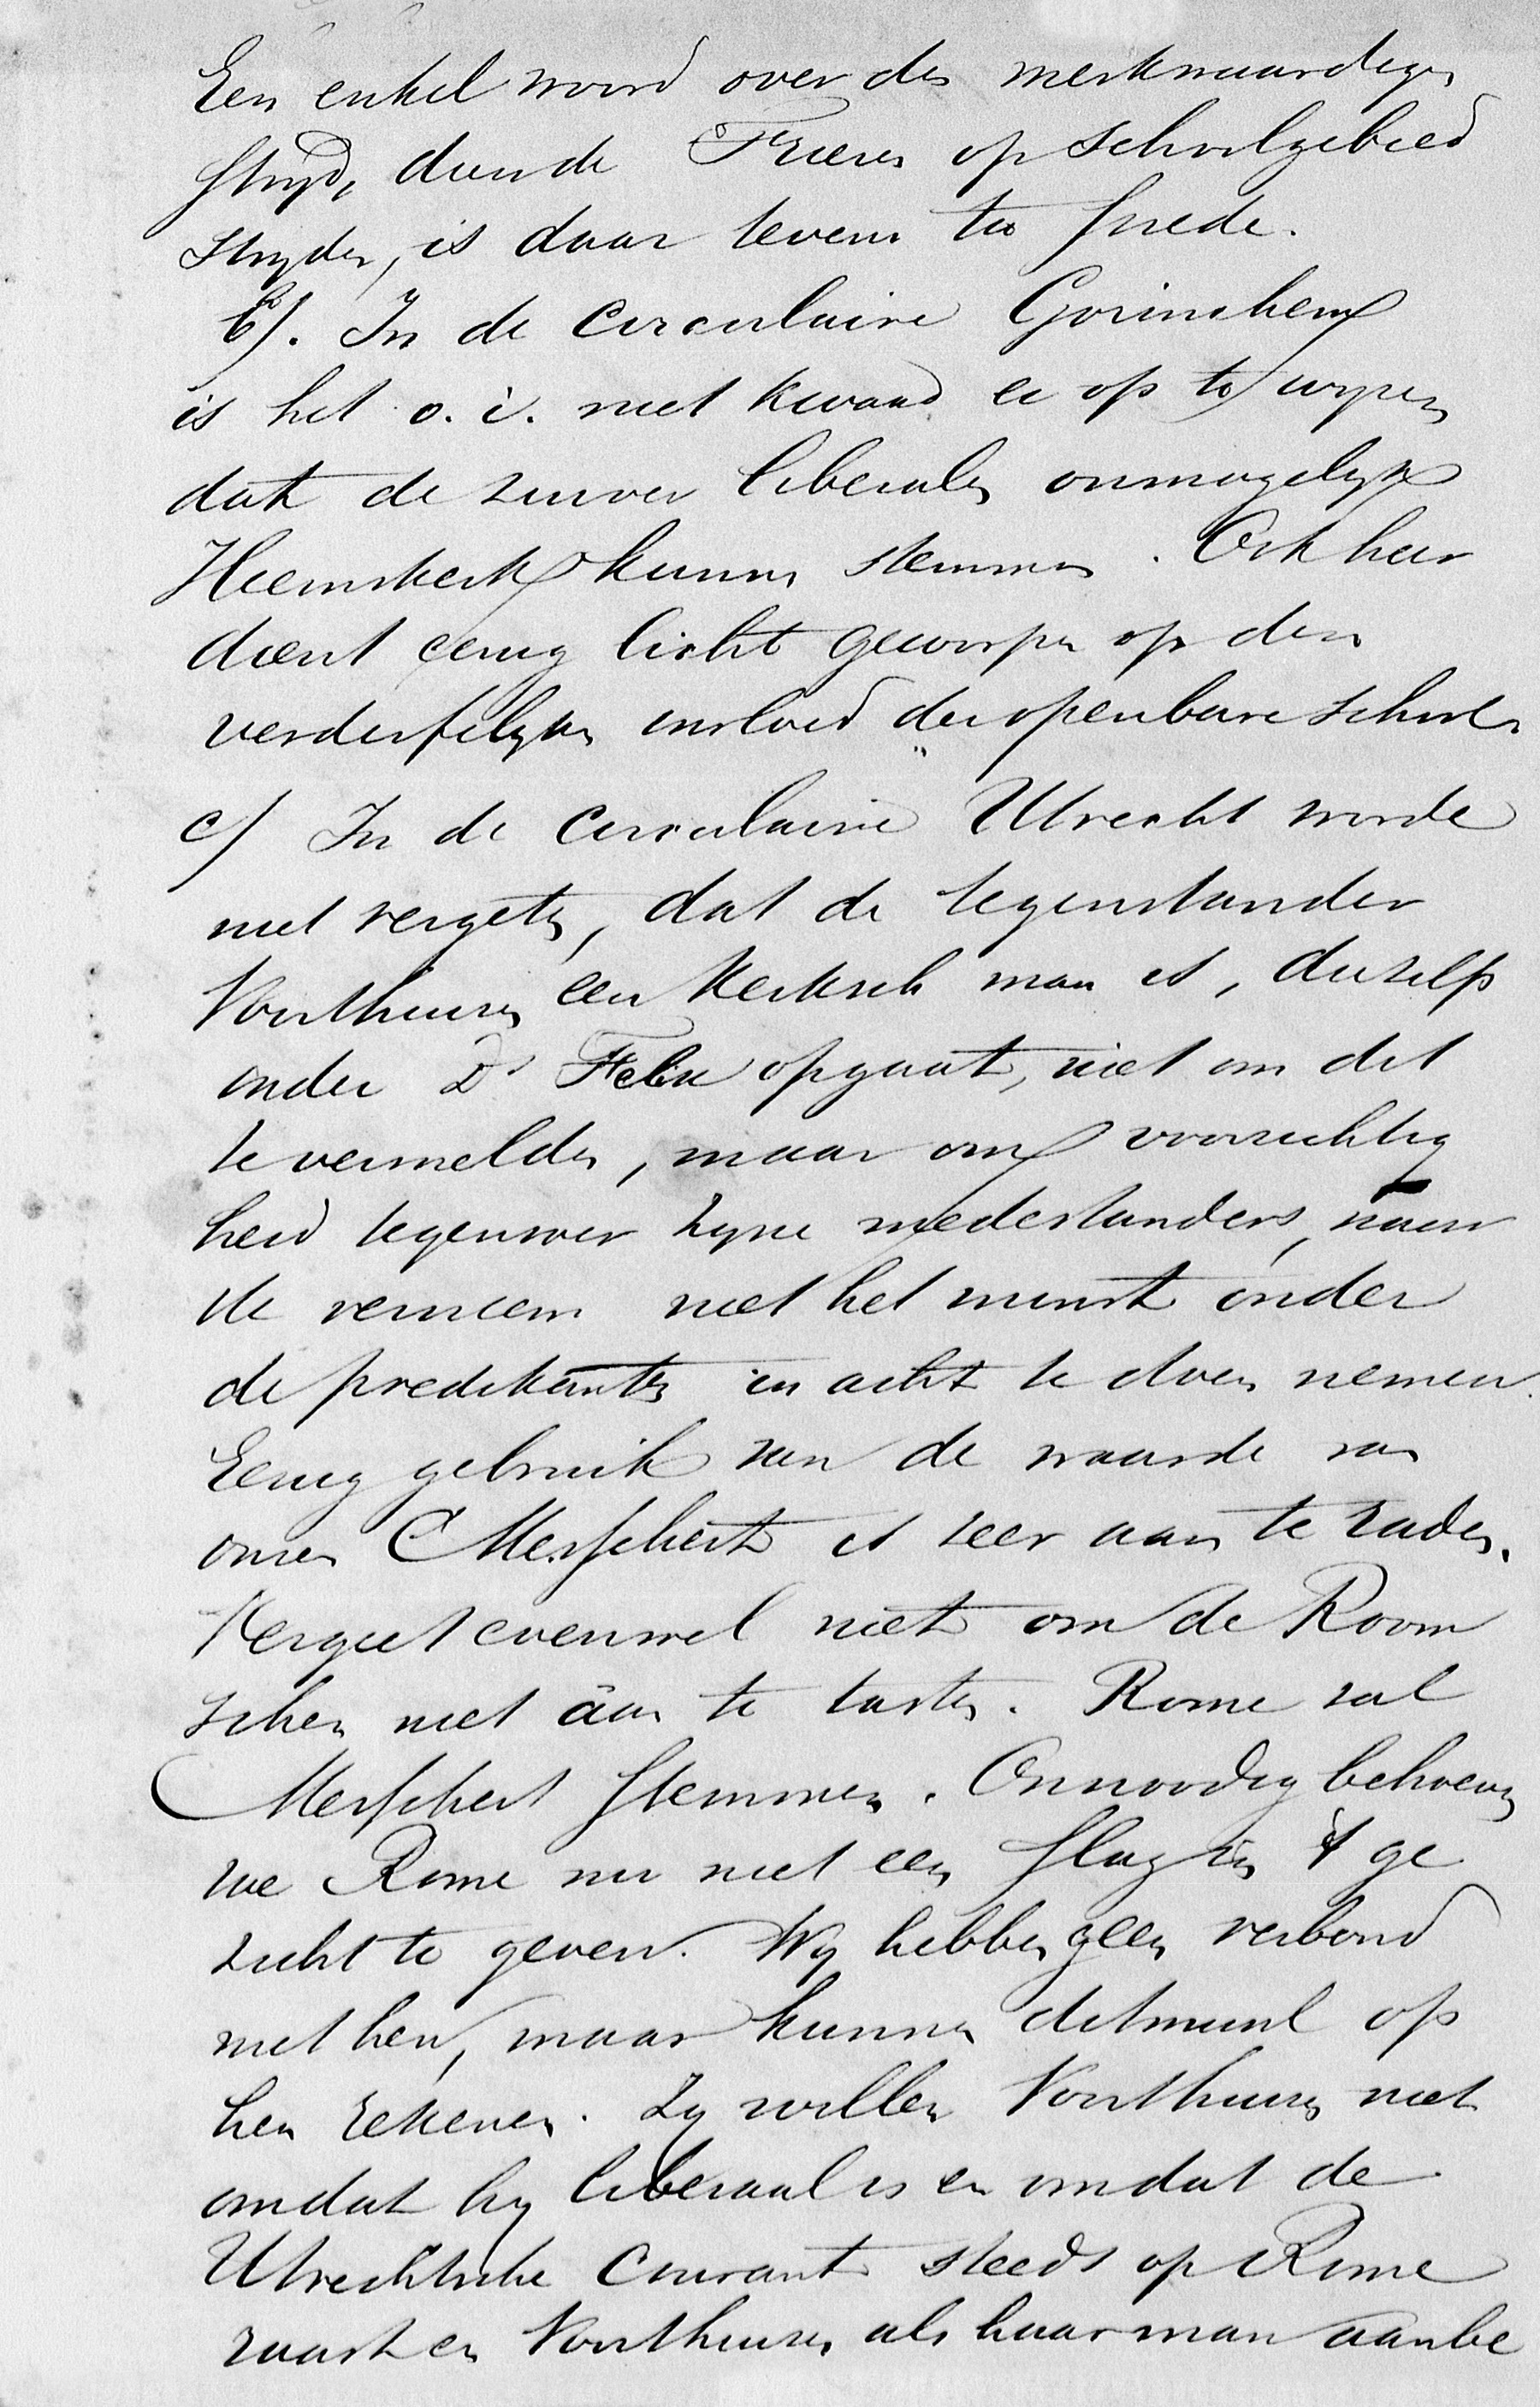 Een enkel woord over den merkwaardigen
strijd, dien de Friezen op schoolgebied
strijden, is daar tevens ter snede.
b). In de circulaire Gorinchem
is het o. i. niet kwaad er op te wijzen
dat de zuiver liberalen onmogelijk
Heemskerk kunnen stemmen. Ook hier
dient eenig licht geworpen op den
verderfelijken invloed der openbare scholen
c) In de circulaire Utrecht worde
niet vergeten, dat de tegenstander
Vorsthuizen een kerksch man is, die zelfs
onder Dr Felix opgaat, niet om dit
te vermelden, maar om voorzichtig
heid tegenover zijne medestanders, naar
ik verneem niet het minst onder
de predikanten in acht te doen nemen.
Eenig gebruik van de waarde van
onzen Messchert is zeer aan te raden.
Vergeet evenwel niet om de Room
schen niet aan te tasten. Rome zal
Messchert stemmen. Onnoodig behoeven
we Rome nu niet een slag in 't ge
zicht te geven. Wij hebben geen verbond
met hen, maar kunnen ditmaal op
hen rekenen. Zij willen Vorsthuizen niet
omdat hij liberaal is en omdat de
Utrechtsche Courant steeds op Rome
raast en Vorsthuizen als haar man aanbe